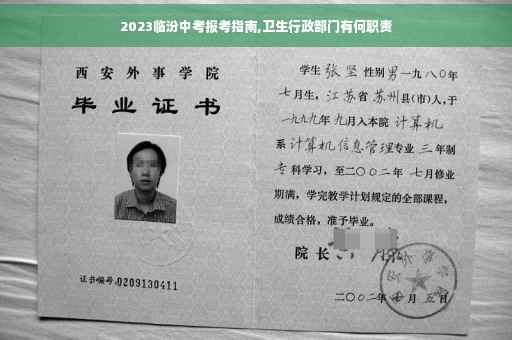 2023临汾中考报考指南,卫生行政部门有何职责
西安外事学院
毕业证书
证书编号:0209130411
学生 张坚 性别 男 一九八0年
七月生, 江苏省 苏州县(市)人,于
一九九九年九月入本院 计算机
系 计算机信息管理专业 三 年制
专科学习,至二〇〇二年 七月修业
期满,学完教学计划规定的全部课程,
成绩合格,准予毕业。
院长
二〇〇二年 月五日